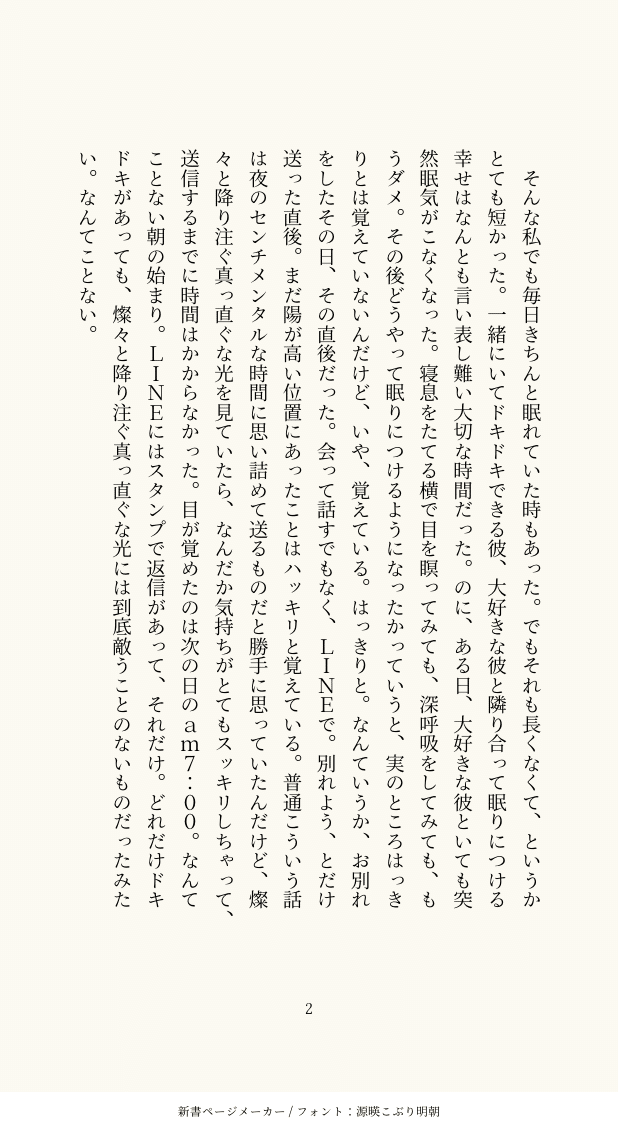 そんな私でも毎日きちんと眠れていた時もあった。でもそれも長くなくて、というか
とても短かった。一緒にいてドキドキできる彼、大好きな彼と隣り合って眠りにつける
幸せはなんとも言い表し難い大切な時間だった。のに、ある日、大好きな彼といても突
然眠気がこなくなった。寝息をたてる横で目を瞑ってみても、深呼吸をしてみても、も
うダメ。その後どうやって眠りにつけるようになったかっていうと、実のところはっき
りとは覚えていないんだけど、いや、覚えている。はっきりと。なんていうか、お別れ
をしたその日、その直後だった。会って話すでもなく、ＬＩＮＥで。別れよう、とだけ
送った直後。まだ陽が高い位置にあったことはハッキリと覚えている。普通こういう話
は夜のセンチメンタルな時間に思い詰めて送るものだと勝手に思っていたんだけど、燦
々と降り注ぐ真っ直ぐな光を見ていたら、なんだか気持ちがとてもスッキリしちゃって、
送信するまでに時間はかからなかった。目が覚めたのは次の日のａｍ７：００。なんて
ことない朝の始まり。ＬＩＮＥにはスタンプで返信があって、それだけ。どれだけドキ
ドキがあっても、燦々と降り注ぐ真っ直ぐな光には到底敵うことのないものだったみた
い。なんてことない。
2
新書ページメーカー / フォント：源暎こぶり明朝